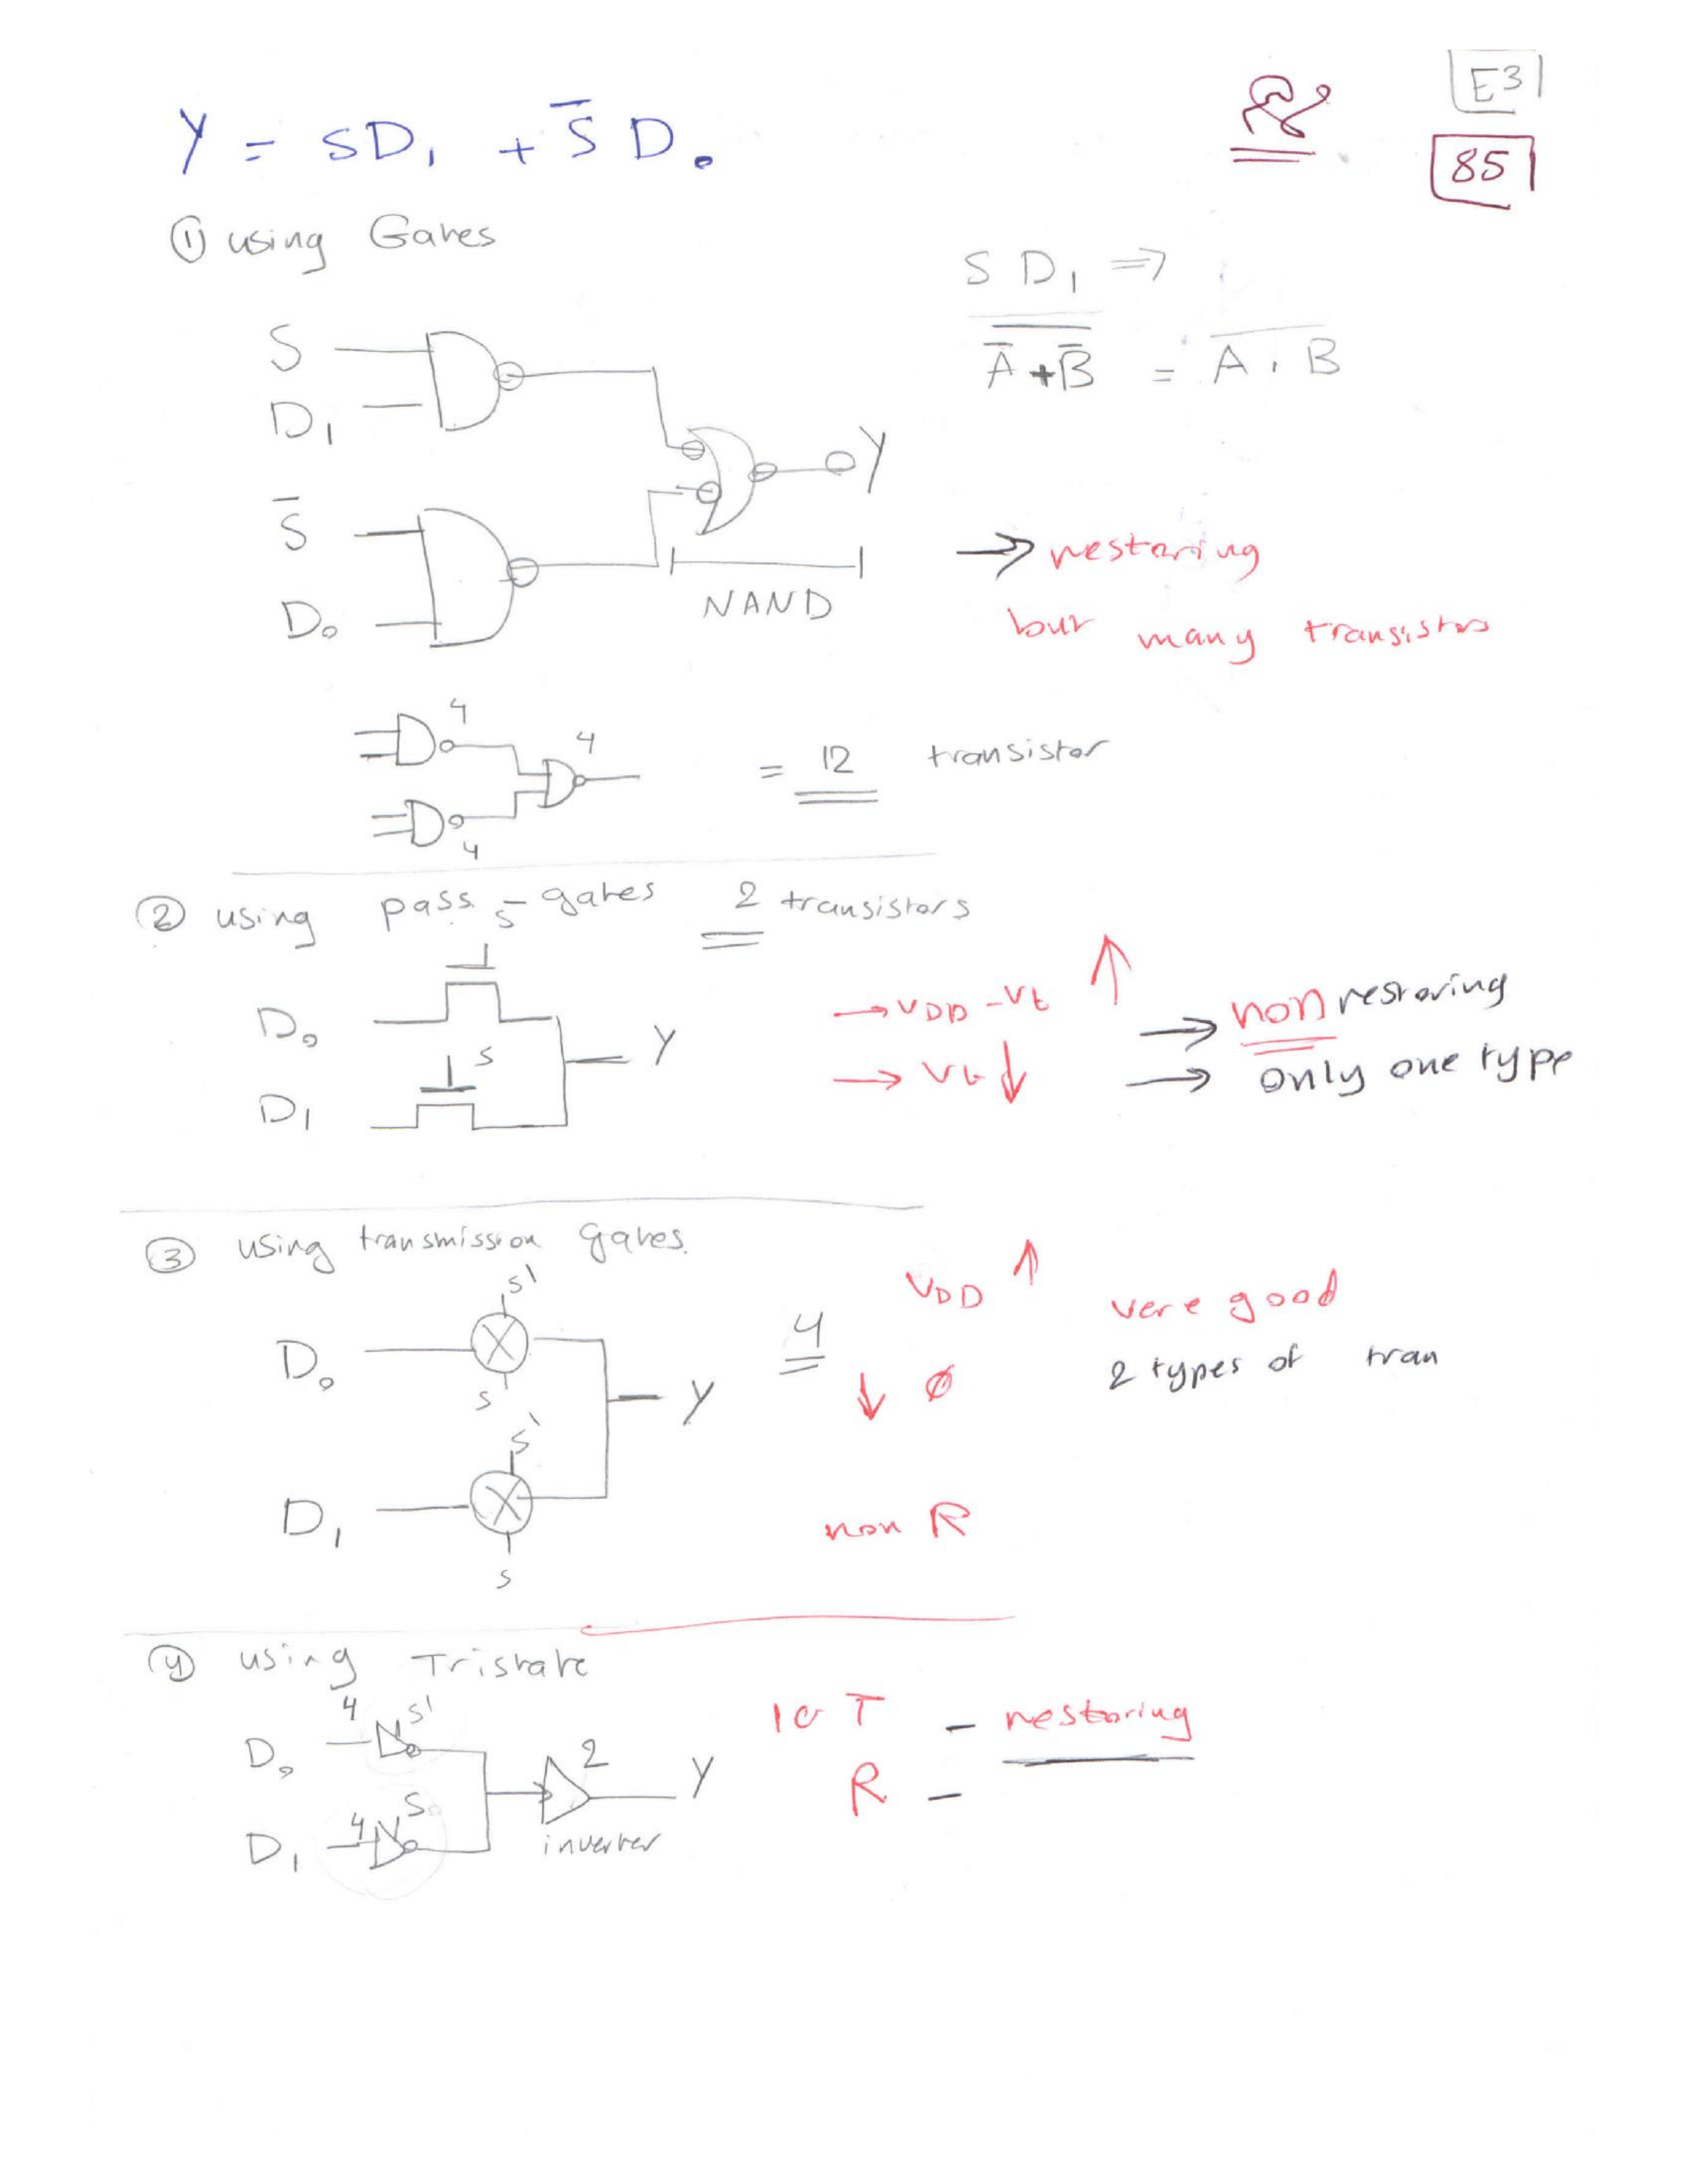 E3
85
Y = SD1 + S̅ D0
① using Gates
S D1 ⇒
S
D1
A̅ + B̅ = A . B
Y
S̅
D0
NAND
→ restoring
but many transistors
4
4
= 12 transistor
4
② using pass-gates 2 transistors
S̅
D0
S
Y
D1
→ VDD - Vt ↑
→ Vt ↓
→ non restoring
→ only one type
③ using transmission gates.
S'
D0
S
Y
S'
D1
S
4
VDD ↑
↓ ∅
very good
2 types of tran
non R
④ using Tristate
4 S'
D0
2
Y
4 S
D1
inverter
10 T - restoring
R -